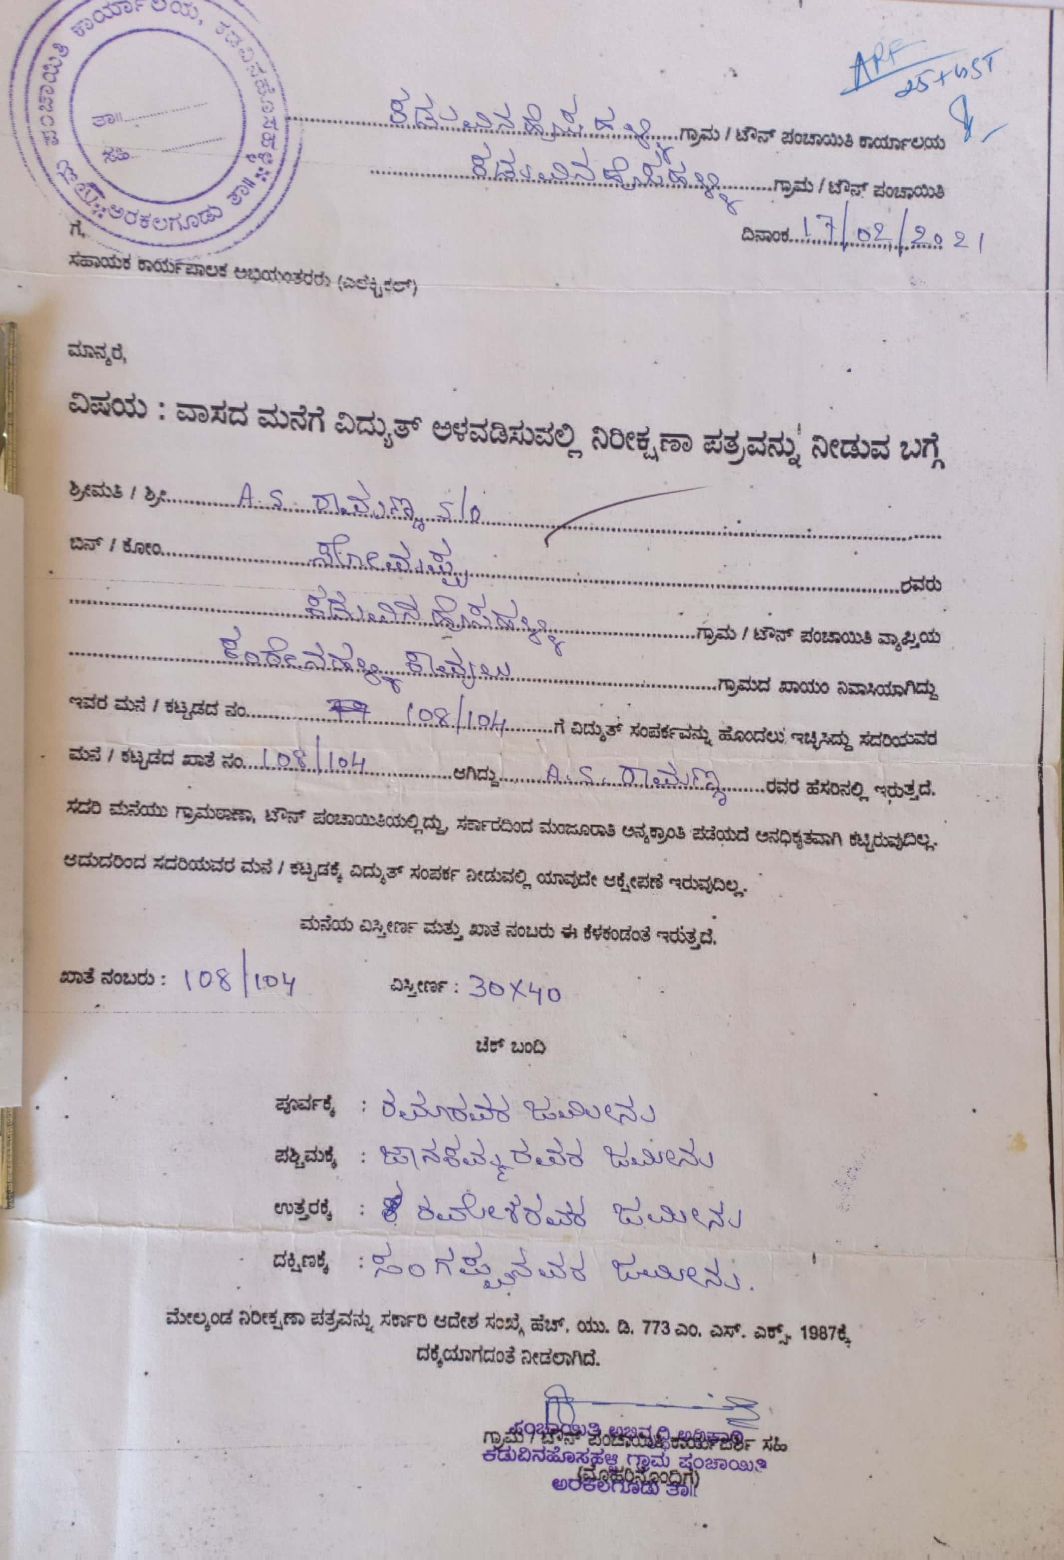 ಪಂಚಾಯಿತಿ ಕಾರ್ಯಾಲಯ, ಕಡವಿನಹೊಸಹಳ್ಳಿ
ಅರಕಲಗೂಡು ತಾ||
ತಾ||
ಸಹಿ
APF
25+GST
ಕಡುವಿನಹೊಸಹಳ್ಳಿ ಗ್ರಾಮ / ಟೌನ್ ಪಂಚಾಯಿತಿ ಕಾರ್ಯಾಲಯ
ಕಡುವಿನಹೊಸಹಳ್ಳಿ ಗ್ರಾಮ / ಟೌನ್ ಪಂಚಾಯಿತಿ
ದಿನಾಂಕ 17/02/2021
ಗೆ,
ಸಹಾಯಕ ಕಾರ್ಯಪಾಲಕ ಅಭಿಯಂತರರು (ಎಲೆಕ್ಟ್ರಿಕಲ್)
ಮಾನ್ಯರೆ,
ವಿಷಯ : ವಾಸದ ಮನೆಗೆ ವಿದ್ಯುತ್ ಅಳವಡಿಸುವಲ್ಲಿ ನಿರೀಕ್ಷಣಾ ಪತ್ರವನ್ನು ನೀಡುವ ಬಗ್ಗೆ
ಶ್ರೀಮತಿ / ಶ್ರೀ A.S. ರಾಮಣ್ಣ S/o
ಬಿನ್ / ಕೋಂ ಸೋಮಪ್ಪ ರವರು
ಕಡುವಿನಹೊಸಹಳ್ಳಿ ಗ್ರಾಮ / ಟೌನ್ ಪಂಚಾಯಿತಿ ವ್ಯಾಪ್ತಿಯ
ಕಾವಲು ಗ್ರಾಮದ ಖಾಯಂ ನಿವಾಸಿಯಾಗಿದ್ದು
ಇವರ ಮನೆ / ಕಟ್ಟಡದ ನಂ 108/104 ಗೆ ವಿದ್ಯುತ್ ಸಂಪರ್ಕವನ್ನು ಹೊಂದಲು ಇಚ್ಛಿಸಿದ್ದು ಸದರಿಯವರ
ಮನೆ / ಕಟ್ಟಡದ ಖಾತೆ ನಂ. 108/104 ಆಗಿದ್ದು A.S. ರಾಮಣ್ಣ ರವರ ಹೆಸರಿನಲ್ಲಿ ಇರುತ್ತದೆ.
ಸದರಿ ಮನೆಯು ಗ್ರಾಮಠಾಣಾ, ಟೌನ್ ಪಂಚಾಯಿತಿಯಲ್ಲಿದ್ದು, ಸರ್ಕಾರದಿಂದ ಮಂಜೂರಾತಿ ಅನ್ಯಕ್ರಾಂತಿ ಪಡೆಯದೆ ಅನಧಿಕೃತವಾಗಿ ಕಟ್ಟಿರುವುದಿಲ್ಲ.
ಆದುದರಿಂದ ಸದರಿಯವರ ಮನೆ / ಕಟ್ಟಡಕ್ಕೆ ವಿದ್ಯುತ್ ಸಂಪರ್ಕ ನೀಡುವಲ್ಲಿ ಯಾವುದೇ ಆಕ್ಷೇಪಣೆ ಇರುವುದಿಲ್ಲ.
ಮನೆಯ ವಿಸ್ತೀರ್ಣ ಮತ್ತು ಖಾತೆ ನಂಬರು ಈ ಕೆಳಕಂಡಂತೆ ಇರುತ್ತದೆ.
ಖಾತೆ ನಂಬರು : 108/104 ವಿಸ್ತೀರ್ಣ : 30X40
ಚೆಕ್ ಬಂದಿ
ಪೂರ್ವಕ್ಕೆ : ರಮಾರವರ ಜಮೀನು
ಪಶ್ಚಿಮಕ್ಕೆ : ಜಾನಕಮ್ಮರವರ ಜಮೀನು
ಉತ್ತರಕ್ಕೆ : ರಮೇಶರವರ ಜಮೀನು
ದಕ್ಷಿಣಕ್ಕೆ : ಸಂಗಪ್ಪನವರ ಜಮೀನು.
ಮೇಲ್ಕಂಡ ನಿರೀಕ್ಷಣಾ ಪತ್ರವನ್ನು ಸರ್ಕಾರಿ ಆದೇಶ ಸಂಖ್ಯೆ ಹೆಚ್. ಯು. ಡಿ. 773 ಎಂ. ಎಸ್. ಎಕ್ಸ್. 1987ಕ್ಕೆ
ದಕ್ಕೆಯಾಗದಂತೆ ನೀಡಲಾಗಿದೆ.
ಪಂಚಾಯಿತಿ ಅಭಿವೃದ್ಧಿ ಅಧಿಕಾರಿ
ಗ್ರಾಮ / ಟೌನ್ ಪಂಚಾಯಿತಿ ಕಾರ್ಯದರ್ಶಿ ಸಹಿ
ಕಡುವಿನಹೊಸಹಳ್ಳಿ ಗ್ರಾಮ ಪಂಚಾಯಿತಿ
(ಮೊಹರಿನೊಂದಿಗೆ)
ಅರಕಲಗೂಡು ತಾ||